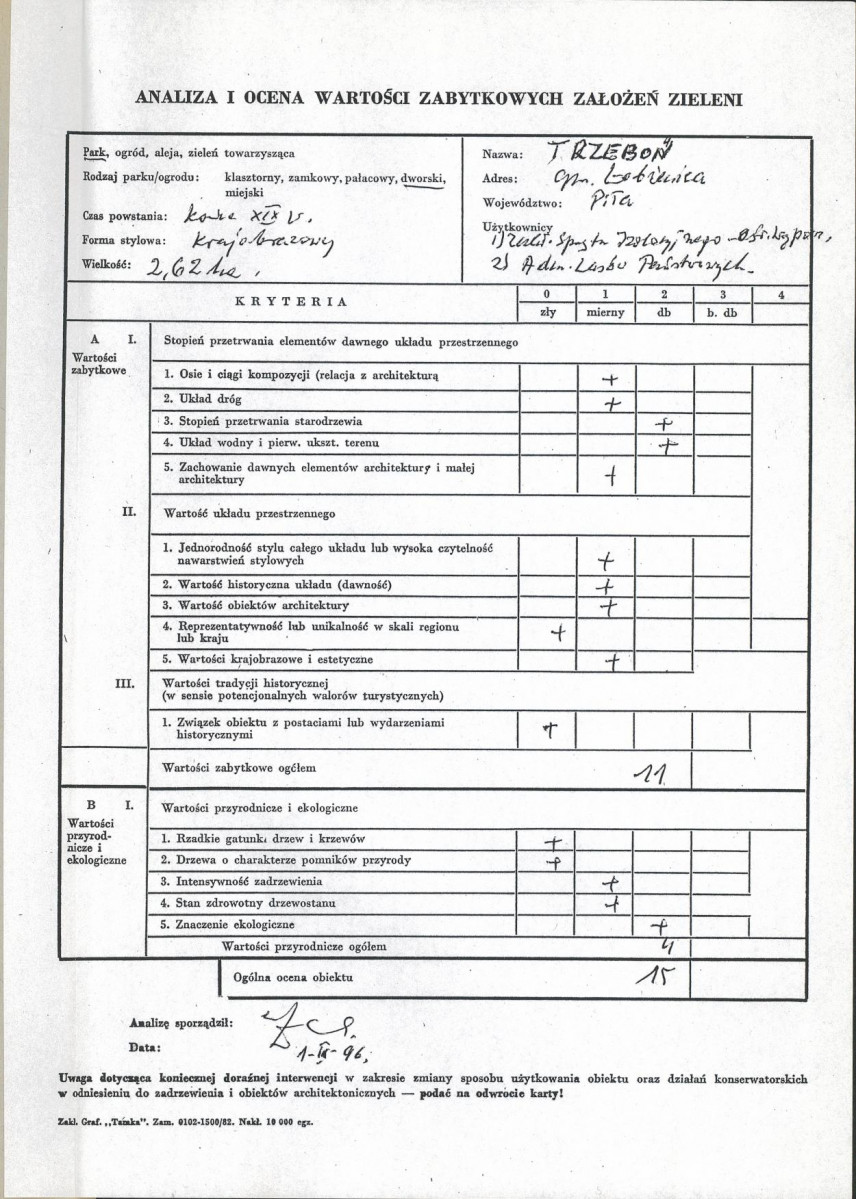 ANALIZA I OCENA WARTOŚCI ZABYTKOWYCH ZAŁOŻEŃ ZIELENI
Park, ogród, aleja, zieleń towarzysząca
Rodzaj parku/ogrodu: klasztorny, zamkowy, pałacowy, dworski,
miejski
Czas powstania: koniec XIX w.
Forma stylowa: Krajobrazowy
Wielkość: 2,62 ha,
Nazwa: TRZEBOŃ
Adres: gm. Łobżenica
Województwo: Piła
Użytkownicy
1)
2) Adm. Lasów Państwowych.
KRYTERIA 0 1 2 3 4
zły mierny db b. db
A I. Stopień przetrwania elementów dawnego układu przestrzennego
Wartości
zabytkowe
1. Osie i ciągi kompozycji (relacja z architekturą +
2. Układ dróg +
3. Stopień przetrwania starodrzewia +
4. Układ wodny i pierw. ukszt. terenu +
5. Zachowanie dawnych elementów architektury i małej
architektury +
II. Wartość układu przestrzennego
1. Jednorodność stylu całego układu lub wysoka czytelność
nawarstwień stylowych +
2. Wartość historyczna układu (dawność) +
3. Wartość obiektów architektury +
4. Reprezentatywność lub unikalność w skali regionu
lub kraju +
5. Wartości krajobrazowe i estetyczne +
III. Wartości tradycji historycznej
(w sensie potencjonalnych walorów turystycznych)
1. Związek obiektu z postaciami lub wydarzeniami
historycznymi +
Wartości zabytkowe ogółem 11
B I. Wartości przyrodnicze i ekologiczne
Wartości
przyrod-
nicze i
ekologiczne
1. Rzadkie gatunki drzew i krzewów +
2. Drzewa o charakterze pomników przyrody +
3. Intensywność zadrzewienia +
4. Stan zdrowotny drzewostanu +
5. Znaczenie ekologiczne +
Wartości przyrodnicze ogółem 4
Ogólna ocena obiektu 15
Analizę sporządził:
Data:
Uwaga dotycząca koniecznej doraźnej interwencji w zakresie zmiany sposobu użytkowania obiektu oraz działań konserwatorskich
w odniesieniu do zadrzewienia i obiektów architektonicznych — podać na odwrocie karty!
Zakł. Graf. „Tamka”. Zam. 0102-1500/82. Nakł. 10 000 egz.